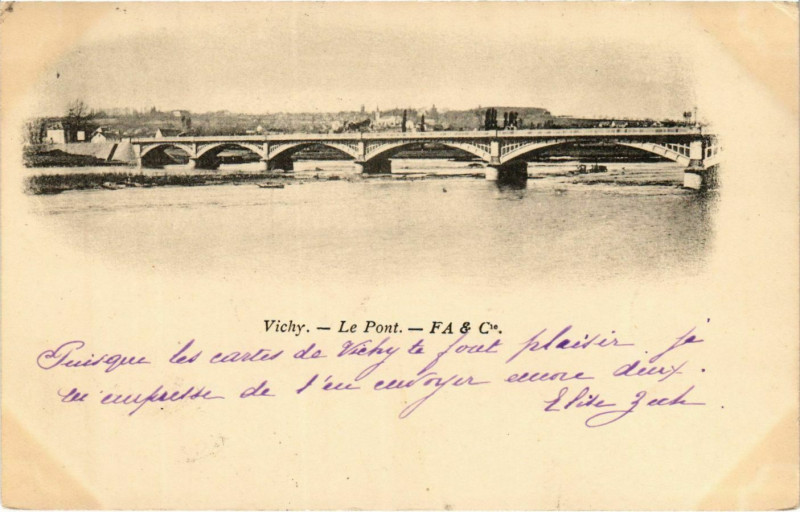 Vichy. — Le Pont. — FA & Cie.
Puisque les cartes de Vichy te font plaisir je
m'empresse de t'en envoyer encore deux.
Elise